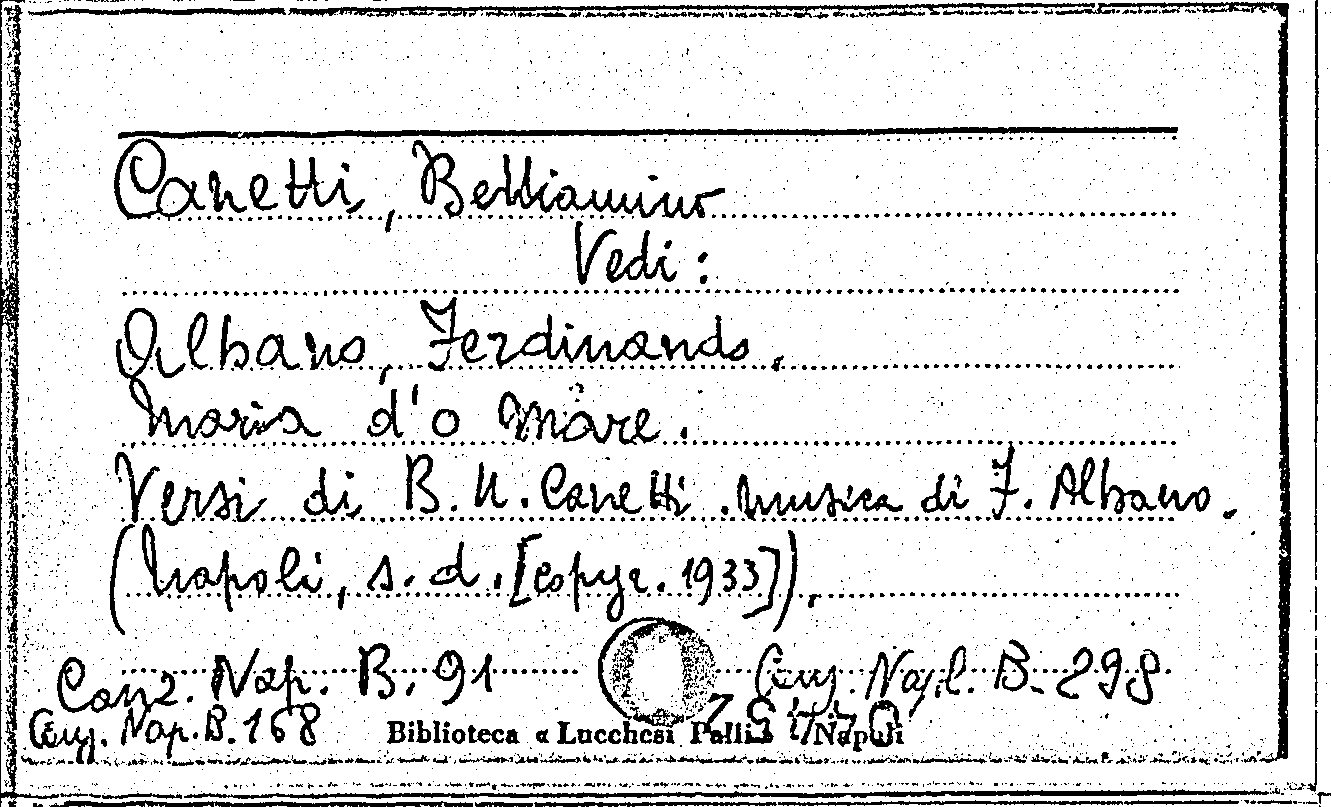 Canetti, Belliamino
Vedi:
Albano, Ferdinando.
Maria d'o Mare.
Versi di B. N. Canetti. Musica di F. Albano.
(Napoli, s. d. [copyr. 1933]).
Canz. Nap. B. 91
Canz. Napol. B. 298
Canz. Nap. B. 168
Biblioteca « Lucchesi Palli » Napoli